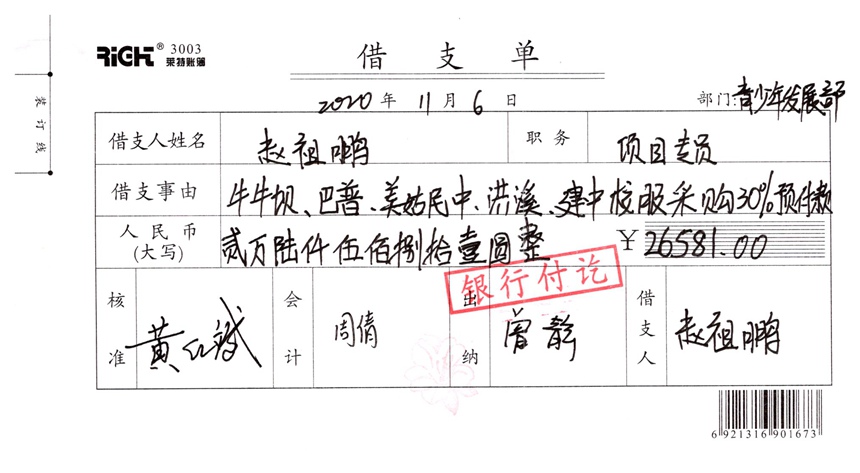 RIGHT® 3003
莱特账簿
借支单
2020年11月6日
部门:青少年发展部
装订线
借支人姓名 赵祖鹏 职务 项目专员
借支事由 牛牛坝、巴普、美姑民中、洪溪、建中校服采购30%预付款
人民币(大写) 贰万陆仟伍佰捌拾壹圆整 ¥26581.00
银行付讫
核准 会计 周倩 出纳 曾静 借支人 赵祖鹏
6 921316 901673